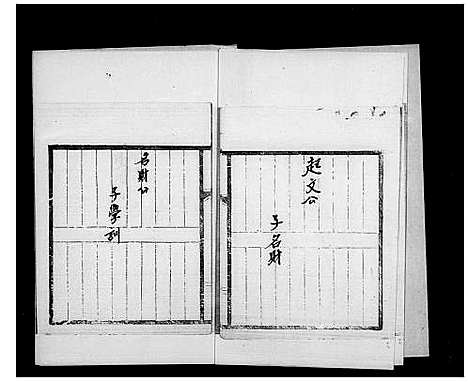 起文公
子名財
名財公
子學利